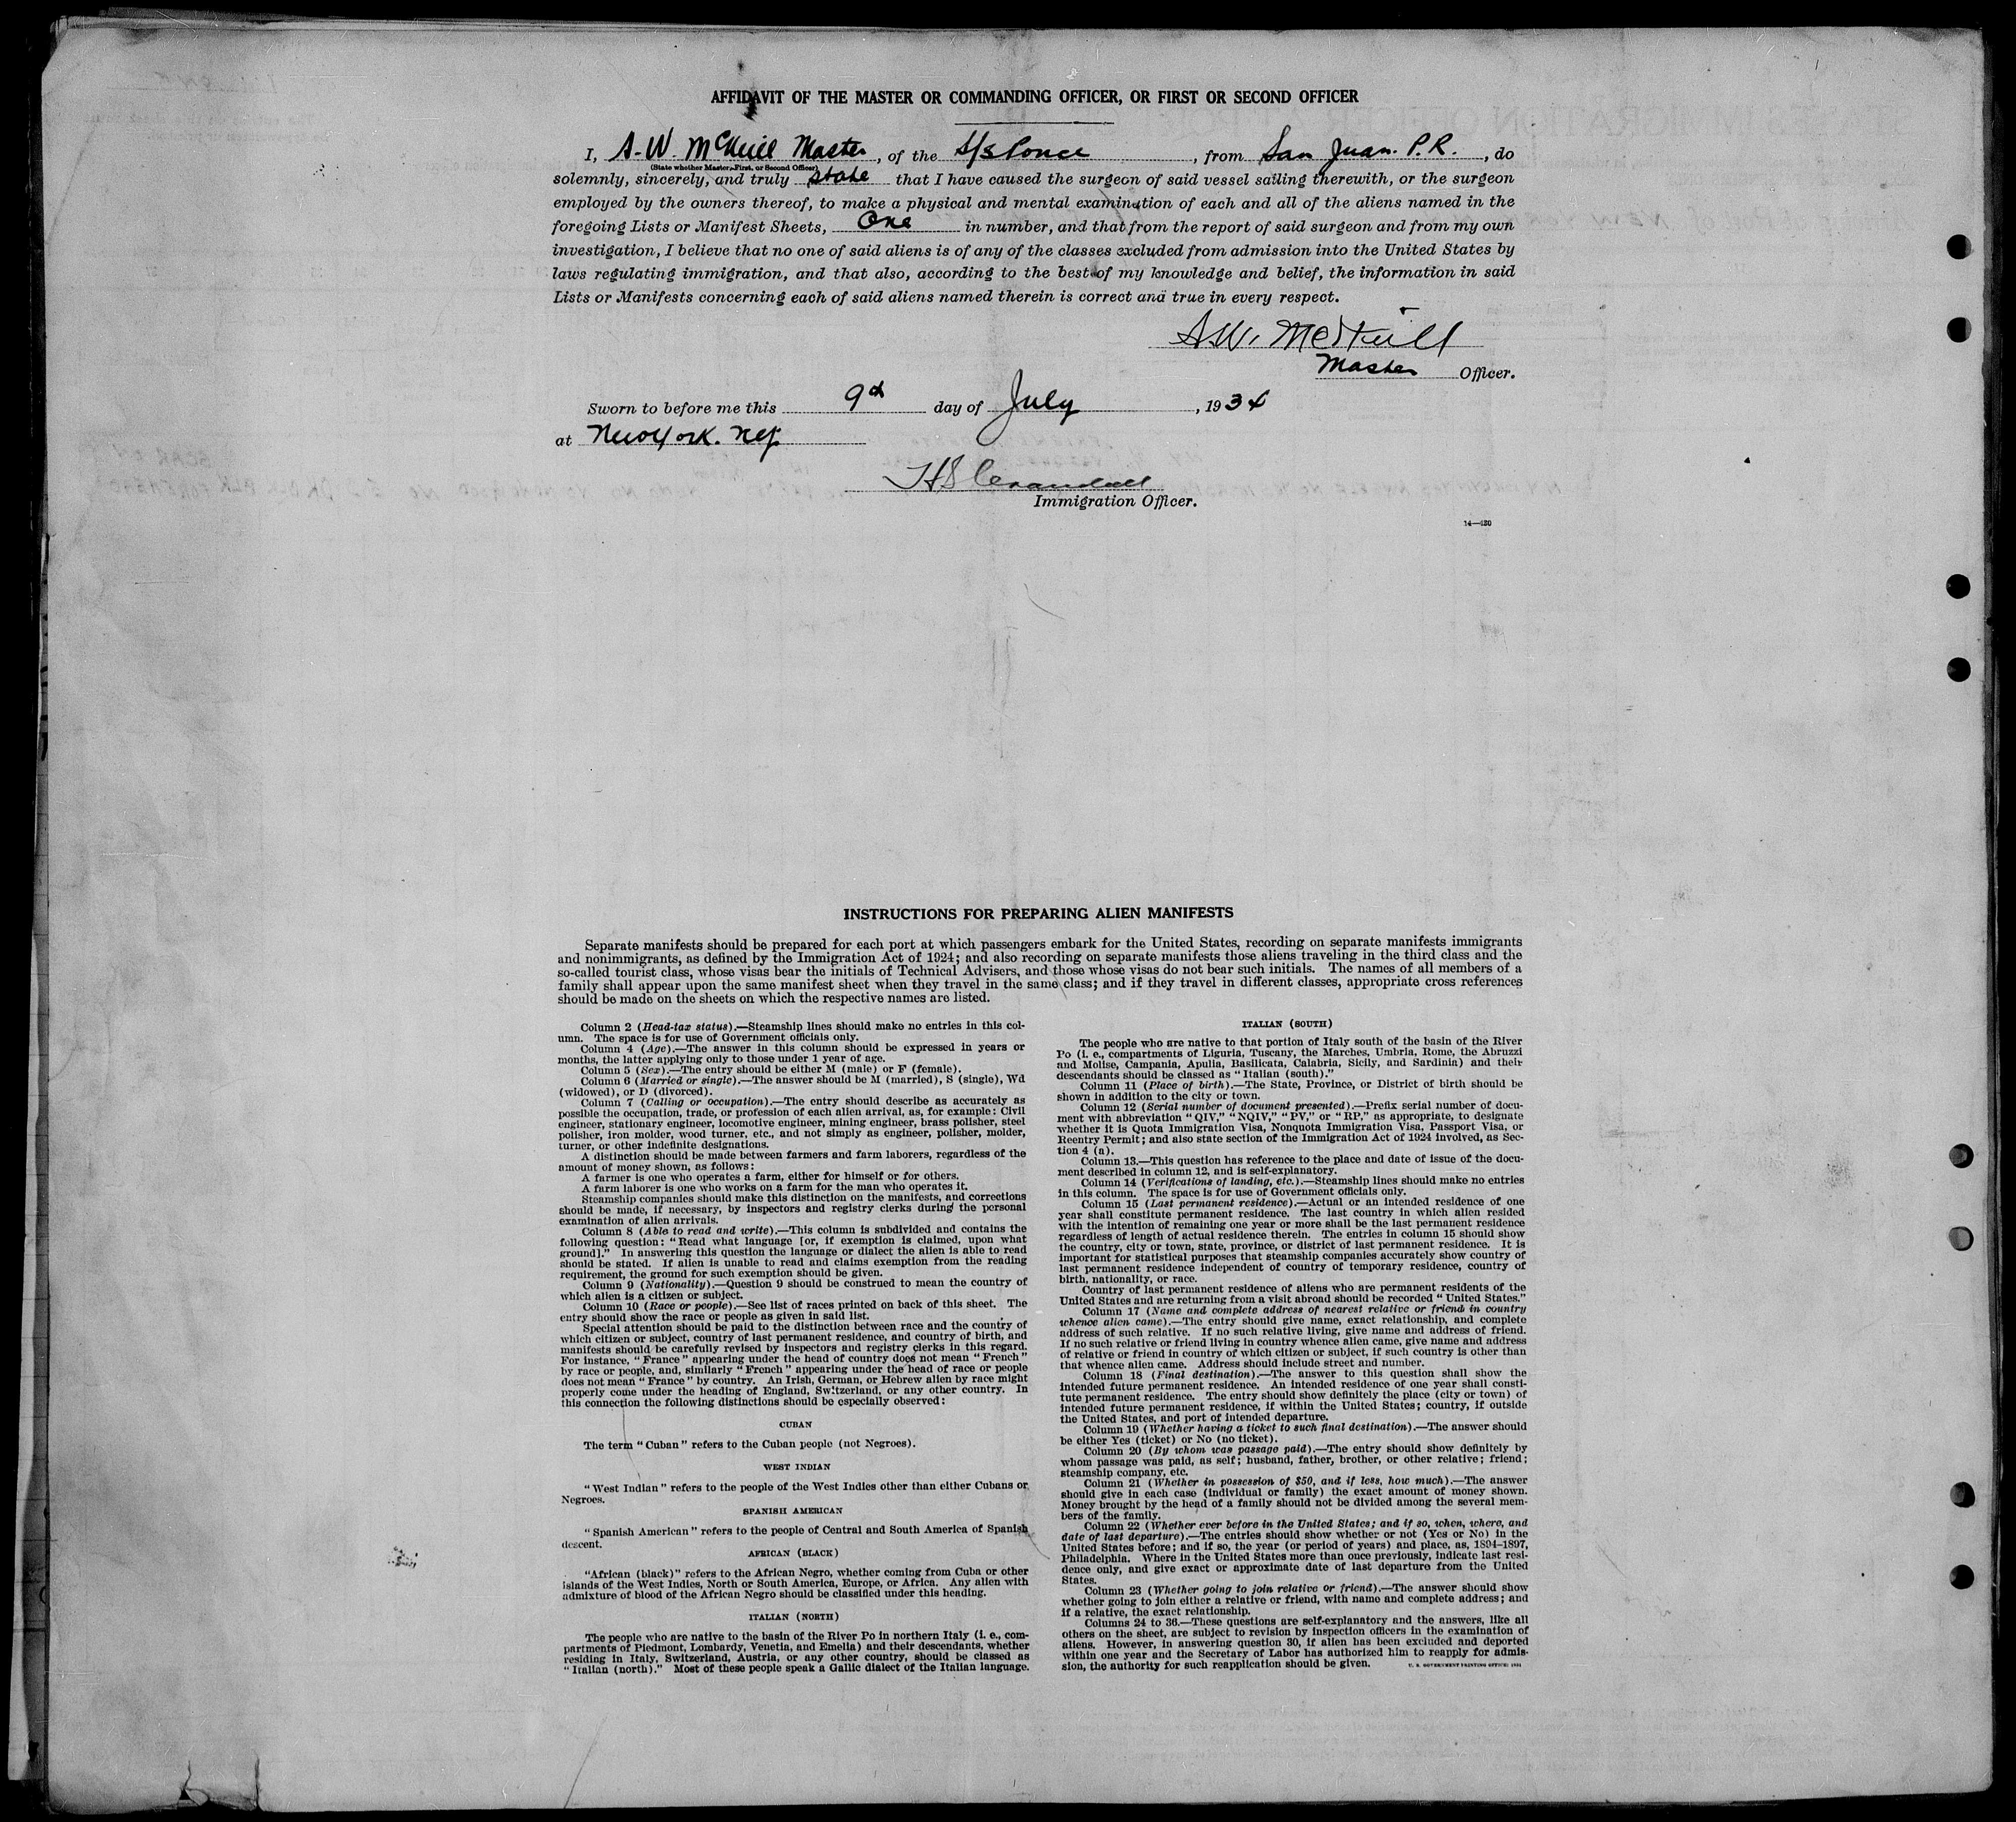 AFFIDAVIT OF THE MASTER OR COMMANDING OFFICER, OR FIRST OR SECOND OFFICER
I, A.W. McNeill Master, of the S/S Ponce, from San Juan. P.R., do
(State whether Master, First, or Second Officer)
solemnly, sincerely, and truly state that I have caused the surgeon of said vessel sailing therewith, or the surgeon
employed by the owners thereof, to make a physical and mental examination of each and all of the aliens named in the
foregoing Lists or Manifest Sheets, One in number, and that from the report of said surgeon and from my own
investigation, I believe that no one of said aliens is of any of the classes excluded from admission into the United States by
laws regulating immigration, and that also, according to the best of my knowledge and belief, the information in said
Lists or Manifests concerning each of said aliens named therein is correct and true in every respect.
A.W. McNeill
Master Officer.
Sworn to before me this 9th day of July, 1934
at New York. NY.
HS Crandall
Immigration Officer.
14—430
INSTRUCTIONS FOR PREPARING ALIEN MANIFESTS
Separate manifests should be prepared for each port at which passengers embark for the United States, recording on separate manifests immigrants
and nonimmigrants, as defined by the Immigration Act of 1924; and also recording on separate manifests those aliens traveling in the third class and the
so-called tourist class, whose visas bear the initials of Technical Advisers, and those whose visas do not bear such initials. The names of all members of a
family shall appear upon the same manifest sheet when they travel in the same class; and if they travel in different classes, appropriate cross references
should be made on the sheets on which the respective names are listed.
Column 2 (Head-tax status).—Steamship lines should make no entries in this col-
umn. The space is for use of Government officials only.
Column 4 (Age).—The answer in this column should be expressed in years or
months, the latter applying only to those under 1 year of age.
Column 5 (Sex).—The entry should be either M (male) or F (female).
Column 6 (Married or single).—The answer should be M (married), S (single), Wd
(widowed), or D (divorced).
Column 7 (Calling or occupation).—The entry should describe as accurately as
possible the occupation, trade, or profession of each alien arrival, as, for example: Civil
engineer, stationary engineer, locomotive engineer, mining engineer, brass polisher, steel
polisher, iron molder, wood turner, etc., and not simply as engineer, polisher, molder,
turner, or other indefinite designations.
A distinction should be made between farmers and farm laborers, regardless of the
amount of money shown, as follows:
A farmer is one who operates a farm, either for himself or for others.
A farm laborer is one who works on a farm for the man who operates it.
Steamship companies should make this distinction on the manifests, and corrections
should be made, if necessary, by inspectors and registry clerks during the personal
examination of alien arrivals.
Column 8 (Able to read and write).—This column is subdivided and contains the
following question: "Read what language [or, if exemption is claimed, upon what
ground]." In answering this question the language or dialect the alien is able to read
should be stated. If alien is unable to read and claims exemption from the reading
requirement, the ground for such exemption should be given.
Column 9 (Nationality).—Question 9 should be construed to mean the country of
which alien is a citizen or subject.
Column 10 (Race or people).—See list of races printed on back of this sheet. The
entry should show the race or people as given in said list.
Special attention should be paid to the distinction between race and the country of
which citizen or subject, country of last permanent residence, and country of birth, and
manifests should be carefully revised by inspectors and registry clerks in this regard.
For instance, "France" appearing under the head of country does not mean "French"
by race or people, and, similarly "French" appearing under the head of race or people
does not mean "France" by country. An Irish, German, or Hebrew alien by race might
properly come under the heading of England, Switzerland, or any other country. In
this connection the following distinctions should be especially observed:
CUBAN
The term "Cuban" refers to the Cuban people (not Negroes).
WEST INDIAN
"West Indian" refers to the people of the West Indies other than either Cubans or
Negroes.
SPANISH AMERICAN
"Spanish American" refers to the people of Central and South America of Spanish
descent.
AFRICAN (BLACK)
"African (black)" refers to the African Negro, whether coming from Cuba or other
islands of the West Indies, North or South America, Europe, or Africa. Any alien with
admixture of blood of the African Negro should be classified under this heading.
ITALIAN (NORTH)
The people who are native to the basin of the River Po in northern Italy (i. e., com-
partments of Piedmont, Lombardy, Venetia, and Emelia) and their descendants, whether
residing in Italy, Switzerland, Austria, or any other country, should be classed as
"Italian (north)." Most of these people speak a Gallic dialect of the Italian language.
ITALIAN (SOUTH)
The people who are native to that portion of Italy south of the basin of the River
Po (i. e., compartments of Liguria, Tuscany, the Marches, Umbria, Rome, the Abruzzi
and Molise, Campania, Apulia, Basilicata, Calabria, Sicily, and Sardinia) and their
descendants should be classed as "Italian (south)."
Column 11 (Place of birth).—The State, Province, or District of birth should be
shown in addition to the city or town.
Column 12 (Serial number of document presented).—Prefix serial number of docu-
ment with abbreviation "QIV," "NQIV," "PV," or "RP," as appropriate, to designate
whether it is Quota Immigration Visa, Nonquota Immigration Visa, Passport Visa, or
Reentry Permit; and also state section of the Immigration Act of 1924 involved, as Sec-
tion 4 (a).
Column 13.—This question has reference to the place and date of issue of the docu-
ment described in column 12, and is self-explanatory.
Column 14 (Verifications of landing, etc.).—Steamship lines should make no entries
in this column. The space is for use of Government officials only.
Column 15 (Last permanent residence).—Actual or an intended residence of one
year shall constitute permanent residence. The last country in which alien resided
with the intention of remaining one year or more shall be the last permanent residence
regardless of length of actual residence therein. The entries in column 15 should show
the country, city or town, state, province, or district of last permanent residence. It is
important for statistical purposes that steamship companies accurately show country of
last permanent residence independent of country of temporary residence, country of
birth, nationality, or race.
Country of last permanent residence of aliens who are permanent residents of the
United States and are returning from a visit abroad should be recorded "United States."
Column 17 (Name and complete address of nearest relative or friend in country
whence alien came).—The entry should give name, exact relationship, and complete
address of such relative. If no such relative living, give name and address of friend.
If no such relative or friend living in country whence alien came, give name and address
of relative or friend in country of which citizen or subject, if such country is other than
that whence alien came. Address should include street and number.
Column 18 (Final destination).—The answer to this question shall show the
intended future permanent residence. An intended residence of one year shall consti-
tute permanent residence. The entry should show definitely the place (city or town) of
intended future permanent residence, if within the United States; country, if outside
the United States, and port of intended departure.
Column 19 (Whether having a ticket to such final destination).—The answer should
be either Yes (ticket) or No (no ticket).
Column 20 (By whom was passage paid).—The entry should show definitely by
whom passage was paid, as self; husband, father, brother, or other relative; friend;
steamship company, etc.
Column 21 (Whether in possession of $50, and if less, how much).—The answer
should give in each case (individual or family) the exact amount of money shown.
Money brought by the head of a family should not be divided among the several mem-
bers of the family.
Column 22 (Whether ever before in the United States; and if so, when, where, and
date of last departure).—The entries should show whether or not (Yes or No) in the
United States before; and if so, the year (or period of years) and place, as, 1894–1897,
Philadelphia. Where in the United States more than once previously, indicate last resi-
dence only, and give exact or approximate date of last departure from the United
States.
Column 23 (Whether going to join relative or friend).—The answer should show
whether going to join either a relative or friend, with name and complete address; and
if a relative, the exact relationship.
Columns 24 to 36.—These questions are self-explanatory and the answers, like all
others on the sheet, are subject to revision by inspection officers in the examination of
aliens. However, in answering question 30, if alien has been excluded and deported
within one year and the Secretary of Labor has authorized him to reapply for admis-
sion, the authority for such reapplication should be given.
U. S. GOVERNMENT PRINTING OFFICE: 1931